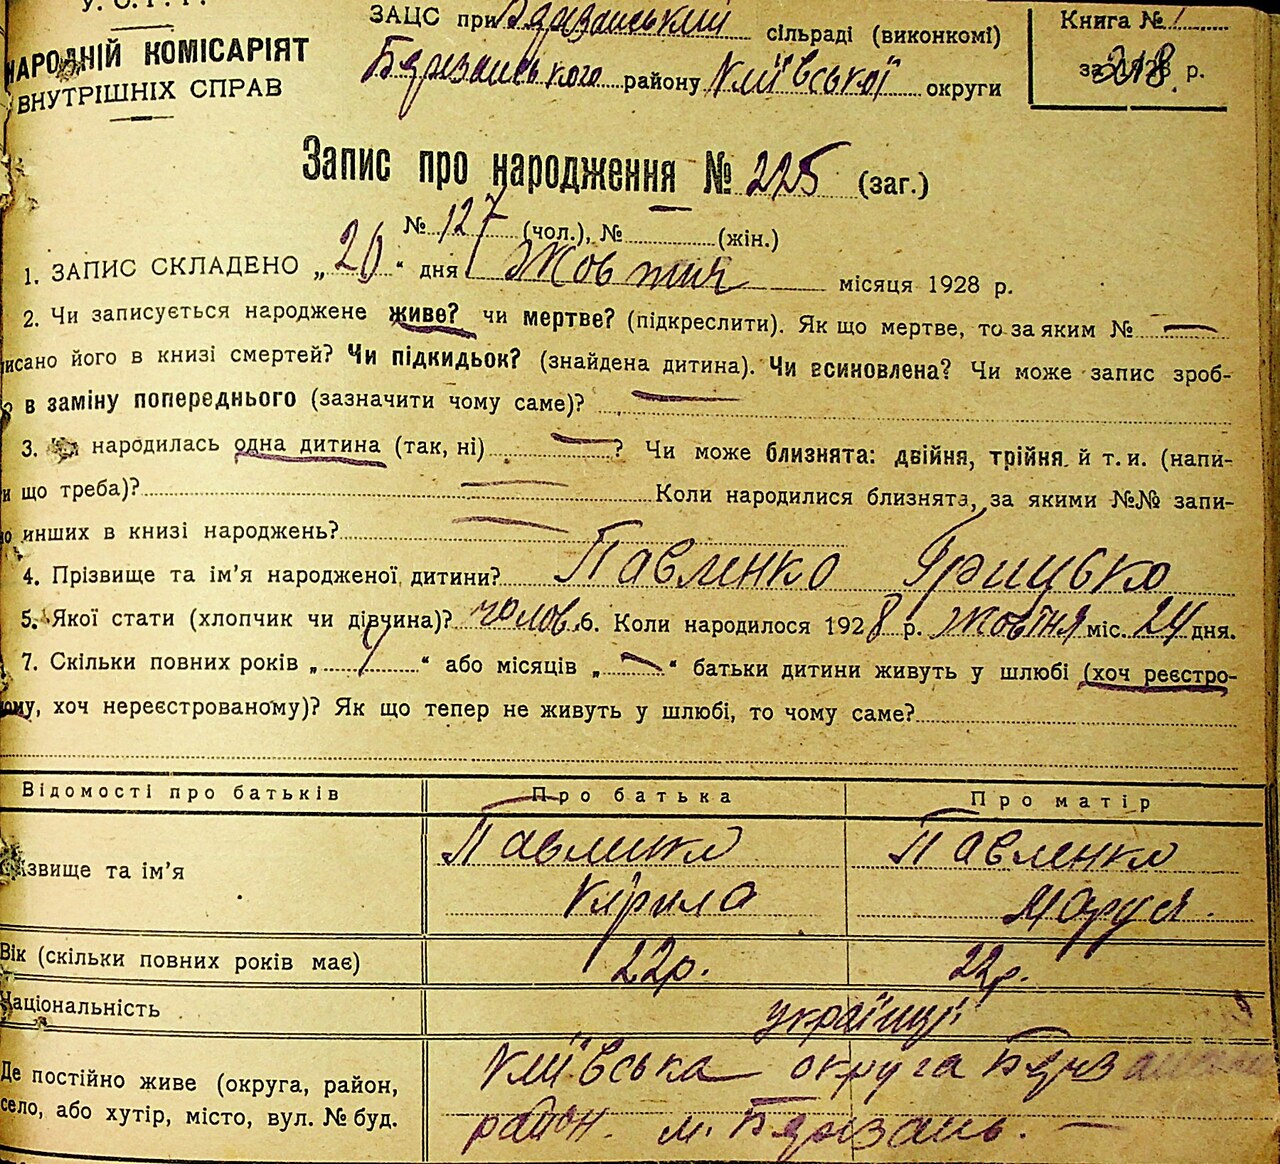 У. С. Р. Р.
НАРОДНІЙ КОМІСАРІЯТ
ВНУТРІШНІХ СПРАВ
ЗАЦС при Бярізанській сільраді (виконкомі)
Бярізанського району Київської округи
Книга № 1
за 1928 р.
Запис про народження № 225 (заг.)
№ 127 (чол.), № (жін.)
1. ЗАПИС СКЛАДЕНО „ 26 “ дня Жовтня місяця 1928 р.
2. Чи записується народжене живе? чи мертве? (підкреслити). Як що мертве, то за яким № —
писано його в книзі смертей? Чи підкидьок? (знайдена дитина). Чи всиновлена? Чи може запис зроб-
в заміну попереднього (зазначити чому саме)? —
3. народилась одна дитина (так, ні) — ? Чи може близнята: двійня, трійня й т. и. (напи-
и що треба)? — Коли народилися близнята, за якими №№ запи-
но инших в книзі народжень? —
4. Прізвище та ім’я народженої дитини? Павленко Грицько
5. Якої стати (хлопчик чи дівчина)? чолов. 6. Коли народилося 1928 р. жовтня міс. 24 дня.
7. Скільки повних років „ “ або місяців „ — “ батьки дитини живуть у шлюбі (хоч реєстро-
ному, хоч нереєстрованому)? Як що тепер не живуть у шлюбі, то чому саме?
Відомості про батьків Про батька Про матір
Прізвище та ім’я Павленко Павленко
Кірила Маруся.
Вік (скільки повних років має) 22р. 22р.
Національність українці
Де постійно живе (округа, район, Київська округа
село, або хутір, місто, вул. № буд. район. м. Бярізань. —